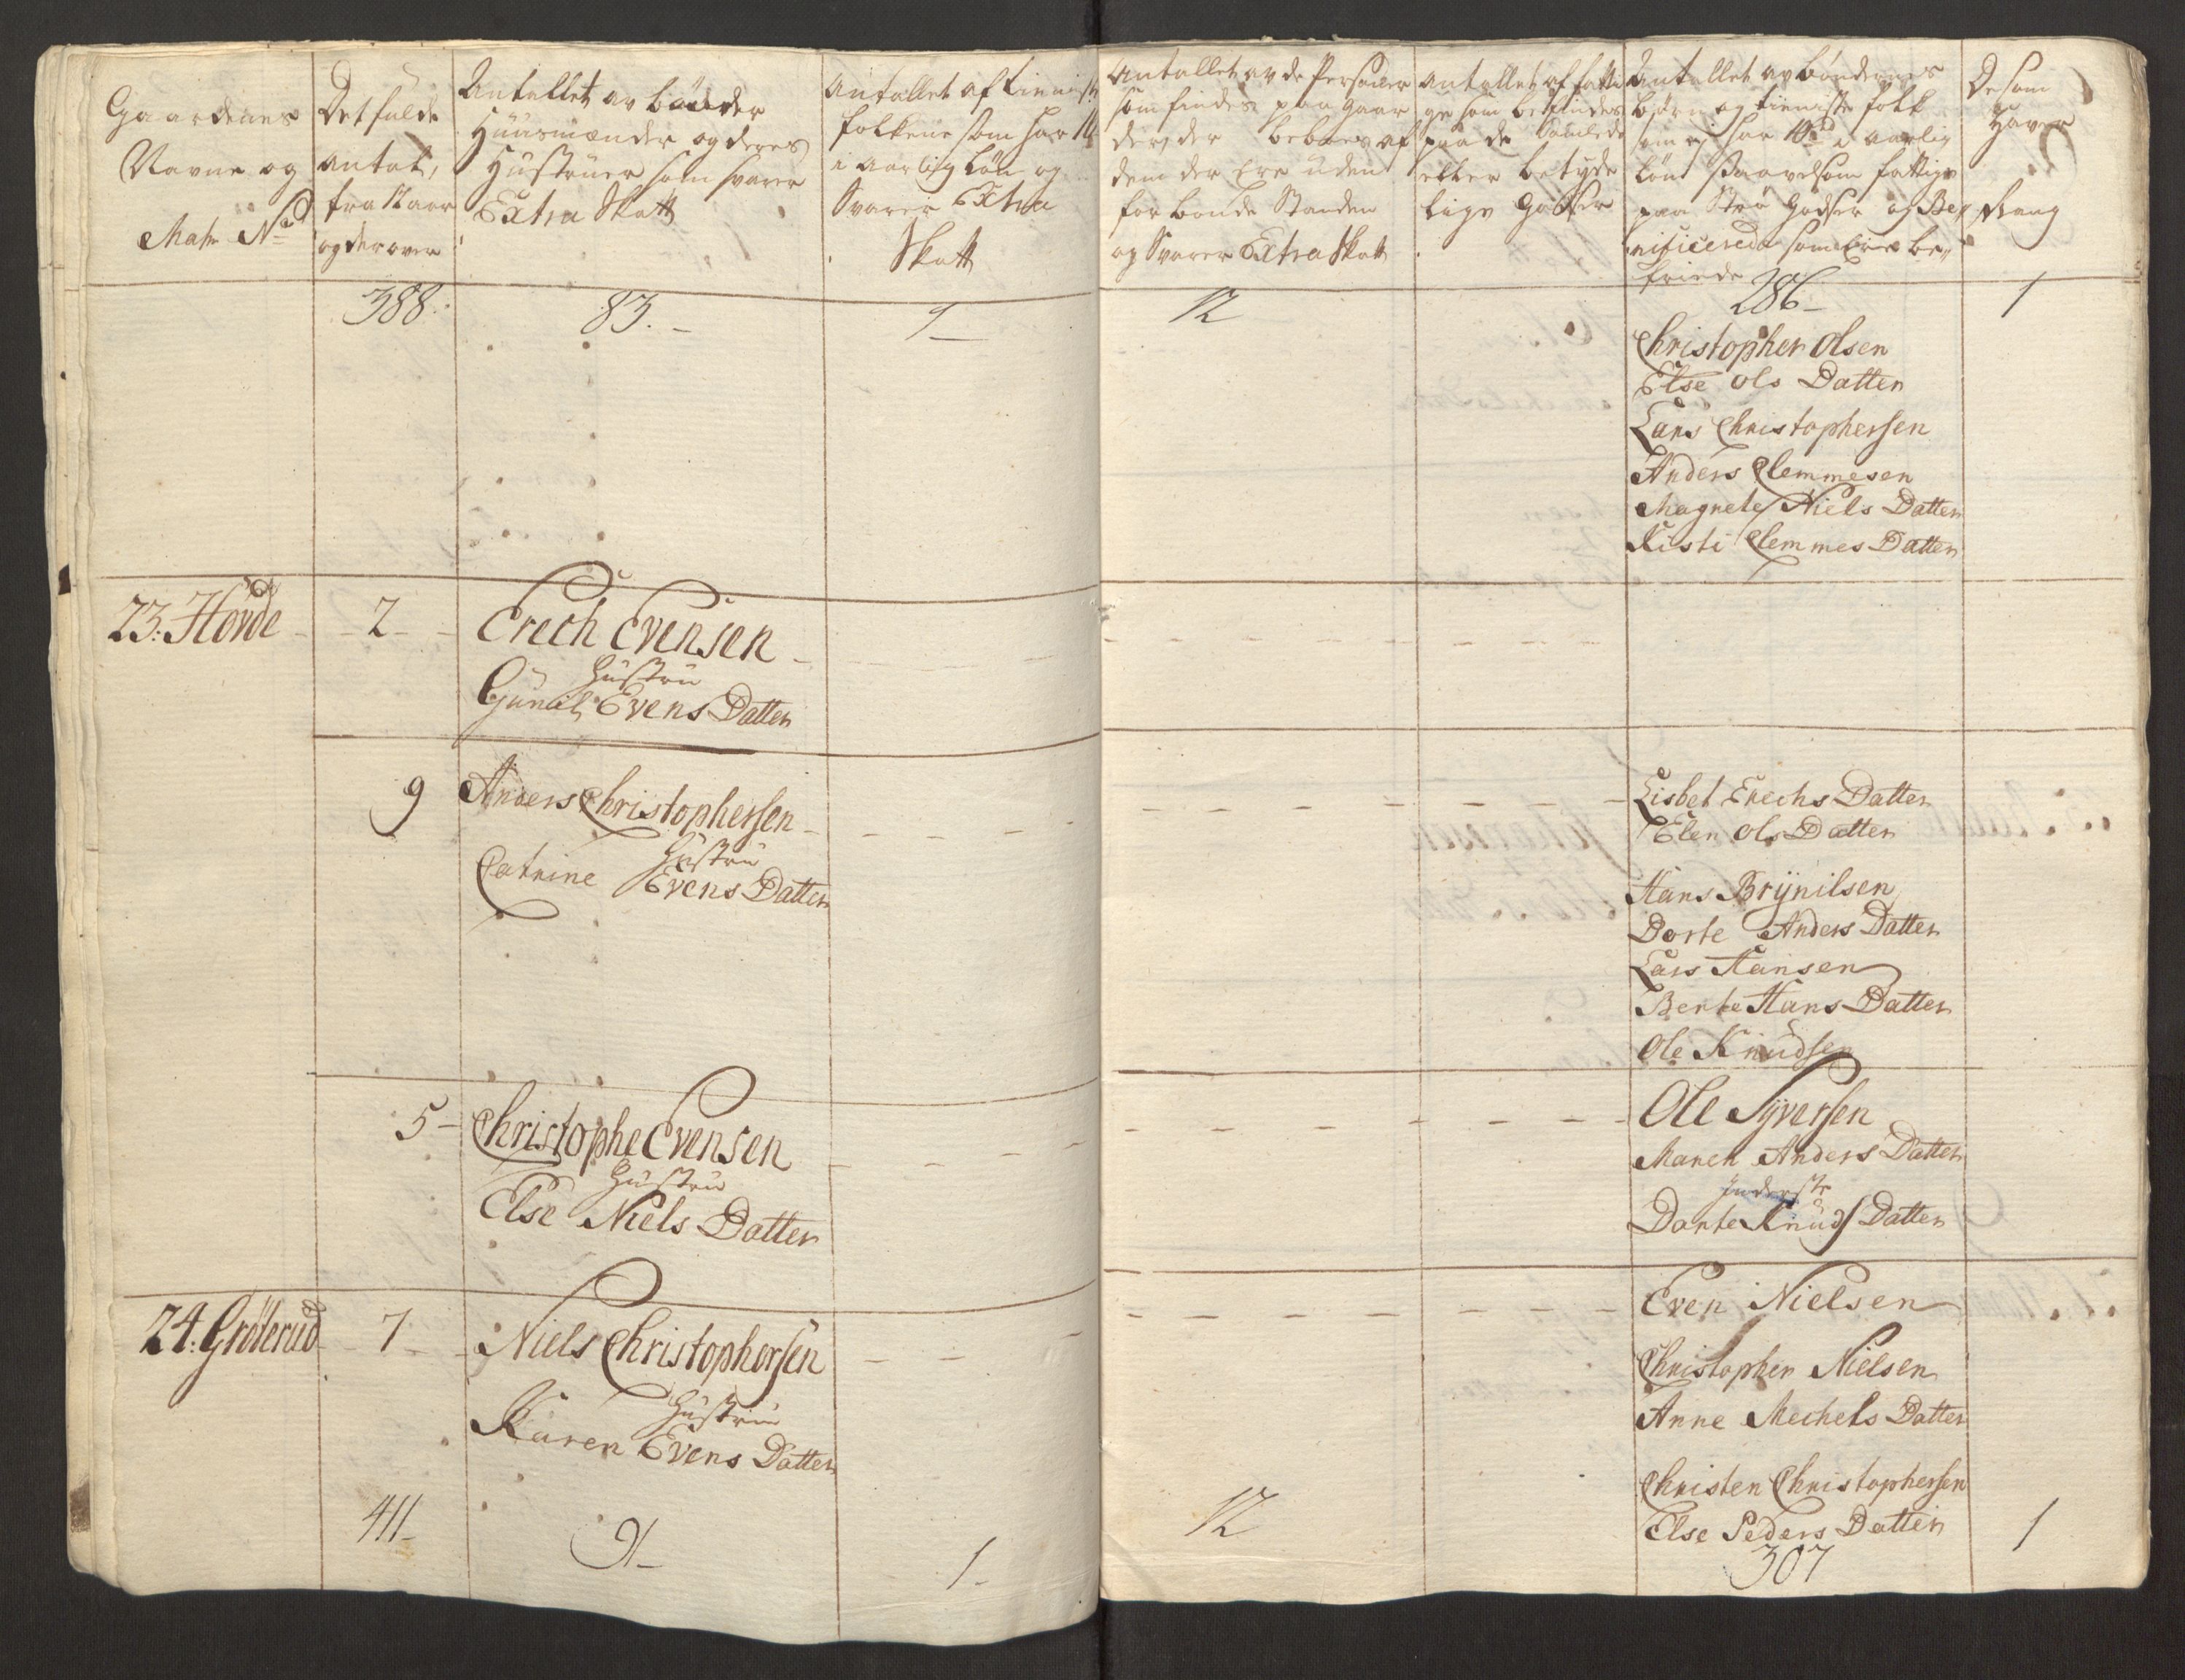 Gaardenes
Navne og
Matr No
Det fulde
antal,
fra 12 aar
og derover
Antallet av bønder
Huusmænder og deres
Hustruer som svarer
Extra Skatt
Antallet af tienniste
folkene som har 10
i aarlig løn og
Svarer Extra
Skatt
Antallet av de Persohner
som findes paa gaar
der, der beboes af
dem der ere uden
for bonde Standen
og Svarer Extra Skatt
Antallet af fatti
ge som befindes
paa de
eller betyde
lige Godser
Antallet av bøndernes
børn og tieniste folk
som ej har 10 rd i aarlig
løn saavelsom fattige
paa Strø Godser og Be
nificerede som ere be,,
friede
De som
haver
Rang
388. 83. 1 12 286 1
Christopher Olsen
Else Ols Datter
Lars Christophersen
Anders Clemmesen
Magrete Niels Datter
Kisti Clemmes Datter
23: Hovde 2 Erech Evensen
Hustru
Gunil Evens Datter
9 Anders Christophersen
Hustru
Catrine Evens Datter
Lisbet Erechs Datter
Elen Ols Datter
Hans Brynilsen
Dorte Anders Datter
Lars Hansen
Berte Hans Datter
Ole Knudsen
5 Christophe Evensen
Hustru
Else Niels Datter
Ole Syversen
Maren Anders Datter
Inderste
Dorte Knuds Datter
24: Grøterud 7 Niels Christophersen
Hustrue
Karen Evens Datter
Even Nielsen
Christopher Nielsen
Anne Mechels Datter
Christen Christophersen
Else Peders Datter
411 91 1 12 307 1